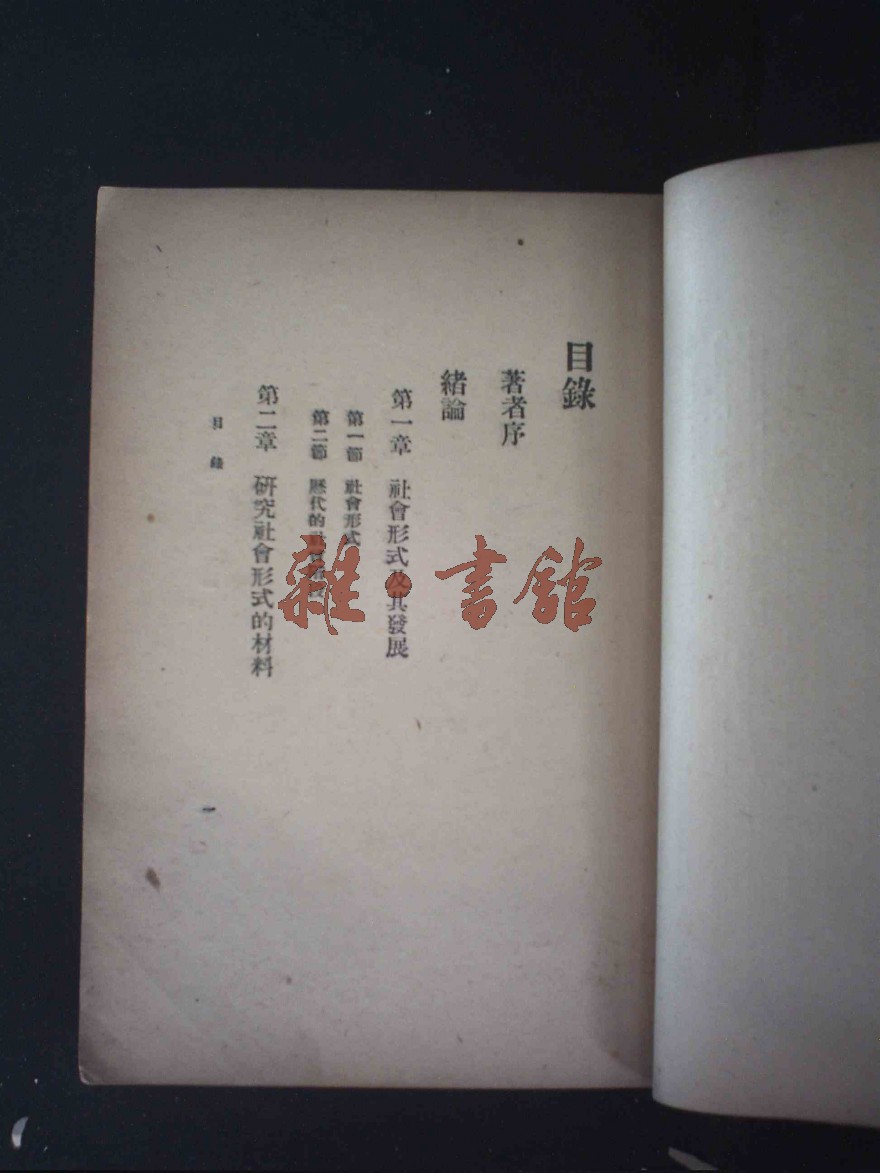 目錄
著者序
緒論
第一章 社會形式及其發展
第一節 社會形式
第二節 歷代的社會
第二章 研究社會形式的材料
目錄
一
雜·書館